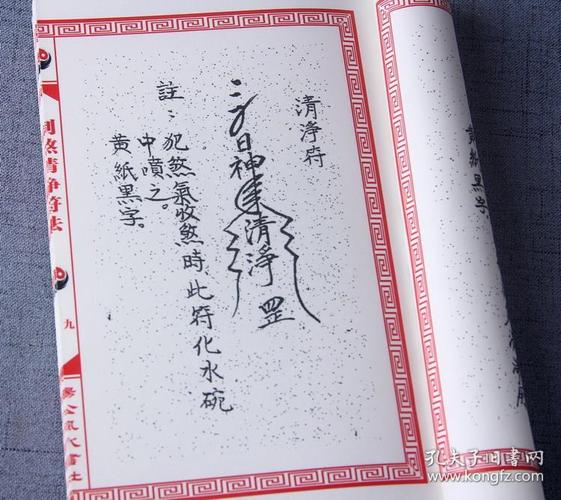 清淨符
日神 清淨罡
註：犯煞氣收煞時此符化水碗
中噴之。
黃紙黑字。
制煞清净符法
九
黃紙黑字
孔夫子旧书网
www.kongfz.com